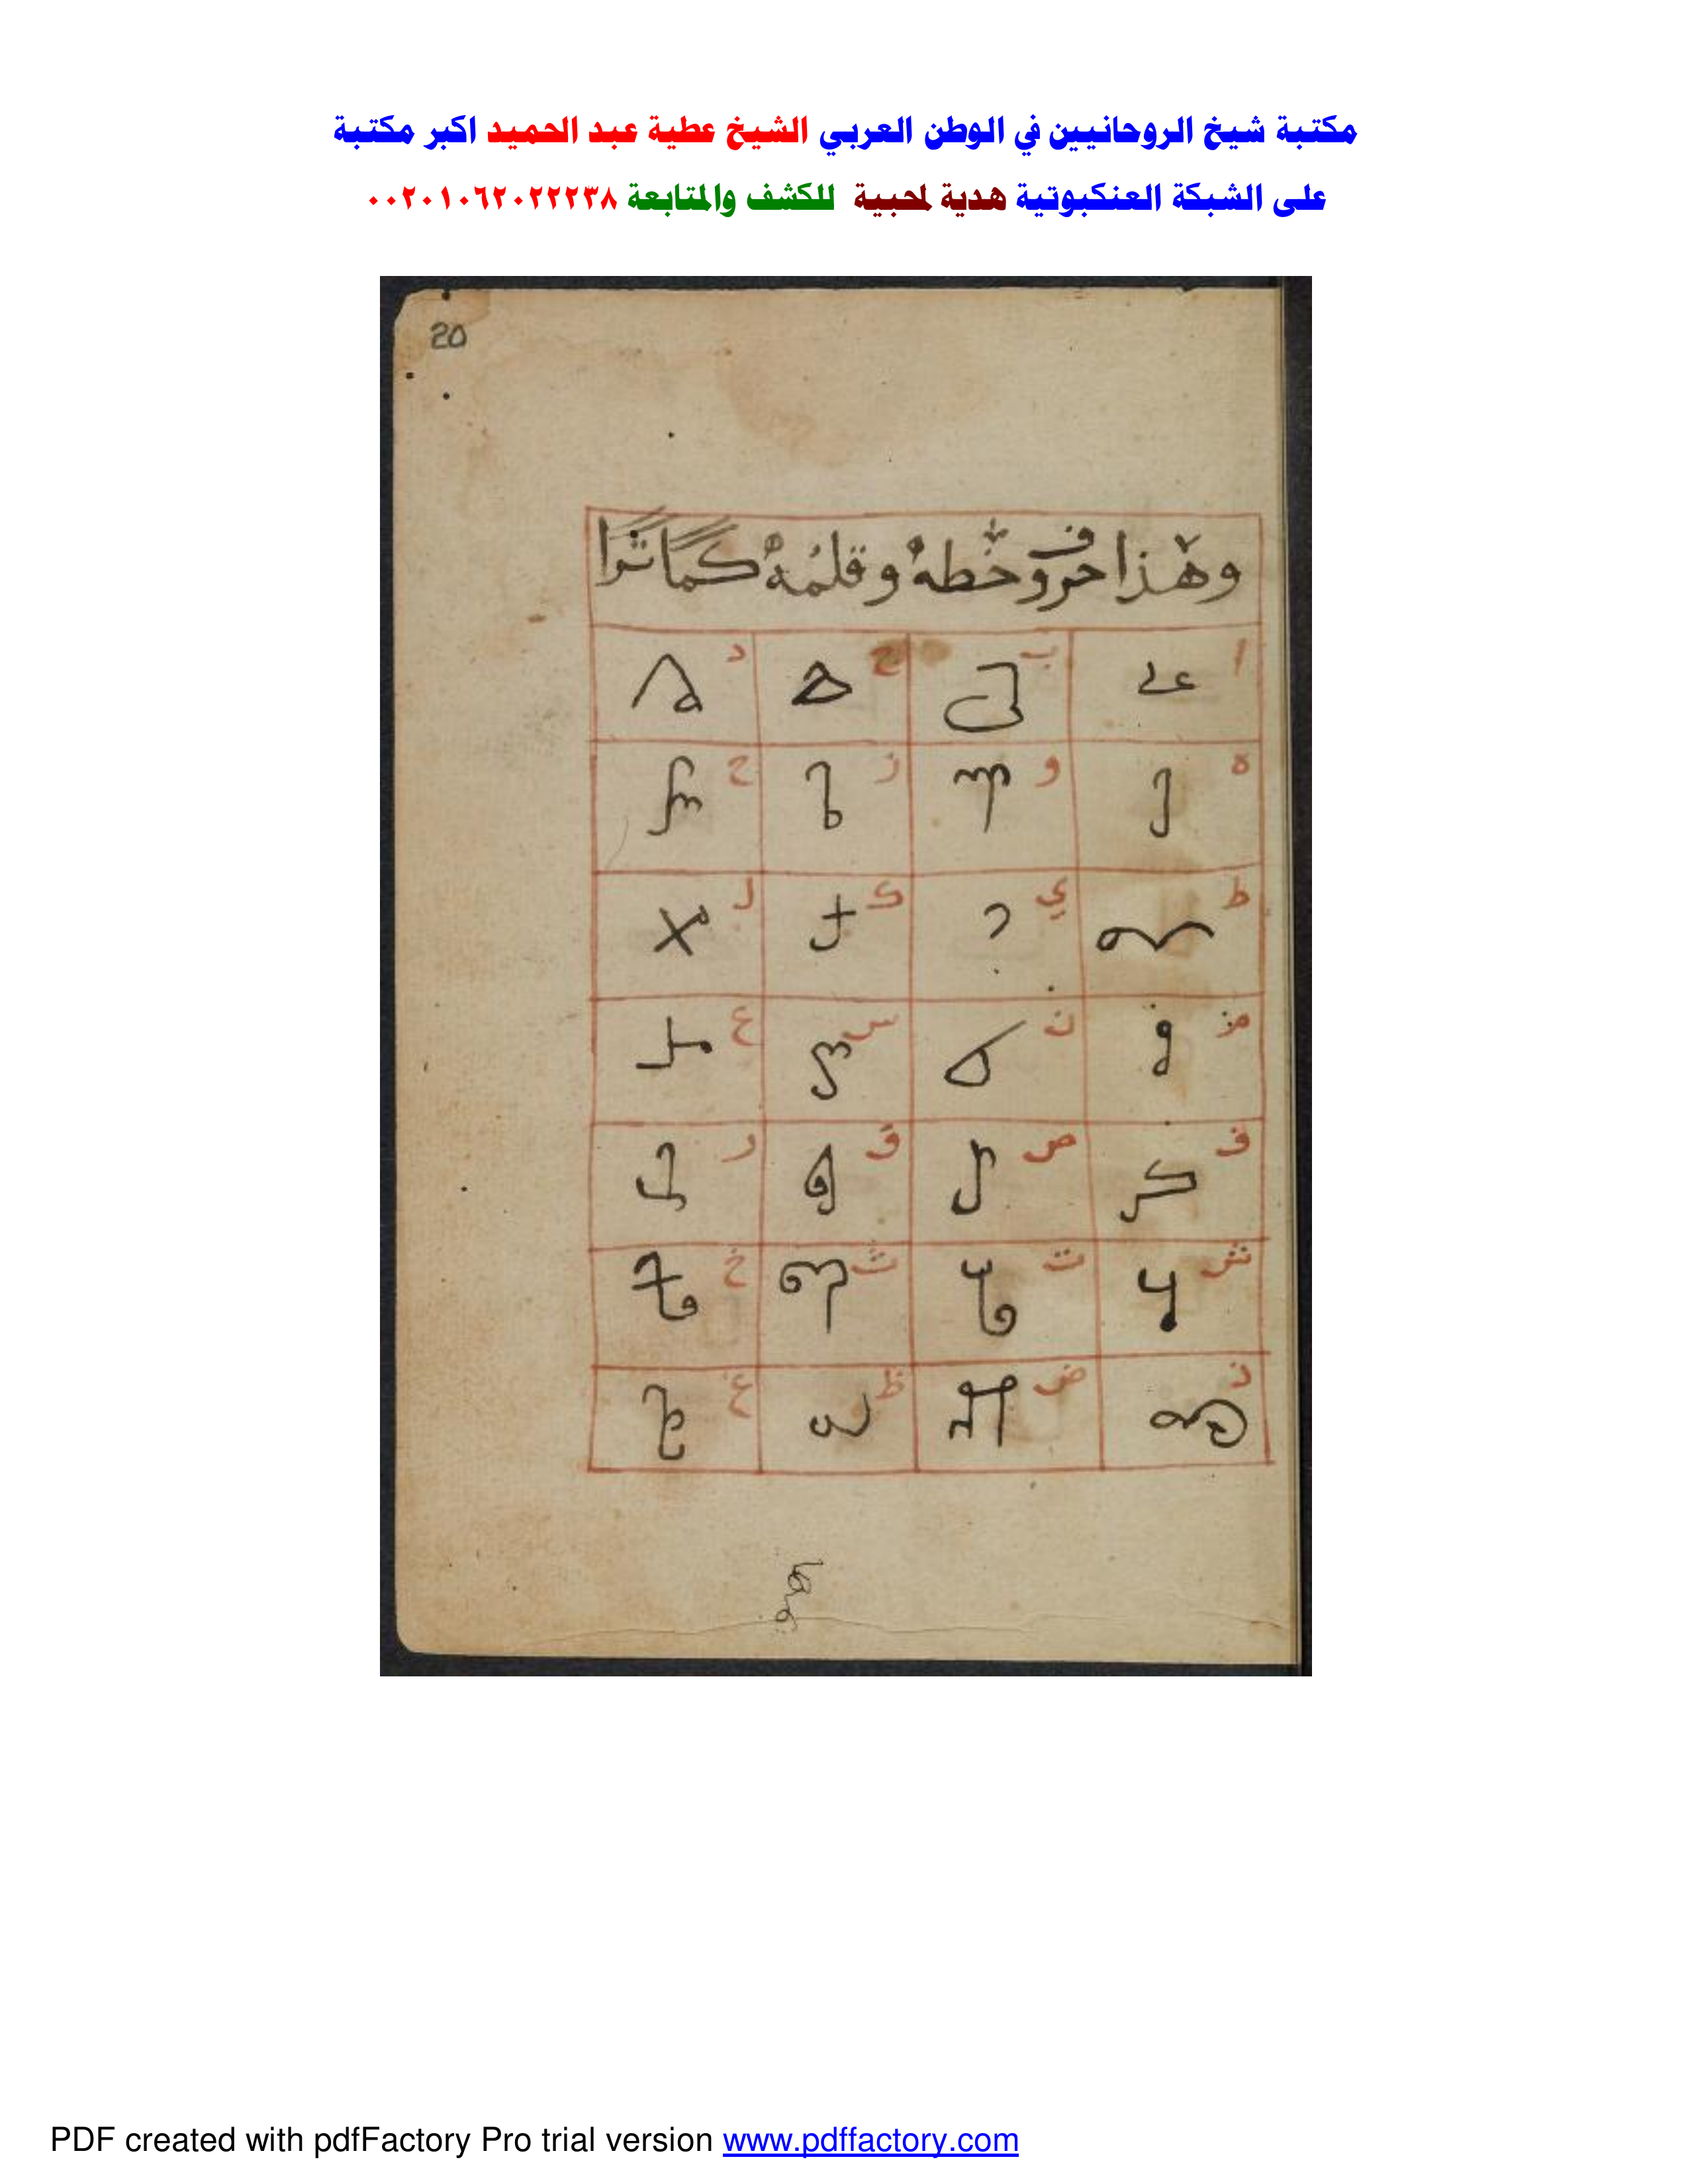 مكتبة شيخ الروحانيين في الوطن العربي الشيخ عطية عبد الحميد اكبر مكتبة
على الشبكة العنكبوتية هدية لمحبيه للكشف والمتابعة ٠٠٢٠١٠٦٢٠٢٢٢٣٨
20
وهذا حروف خطه وقلمه كما ترا
ا ب ج د
ه و ز ح
ط ي ك ل
م ن س ع
ف ص ق ر
ش ت ث خ
ذ ض ظ غ
PDF created with pdfFactory Pro trial version www.pdffactory.com